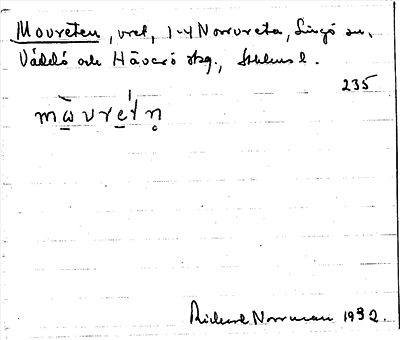 Movreten, vret, 1-4 Norrvreta, Singö sn,
Väddö och Häverö skg., Sthlms l.
235
mὼvrétn̥
Rickard Norrman 1932.